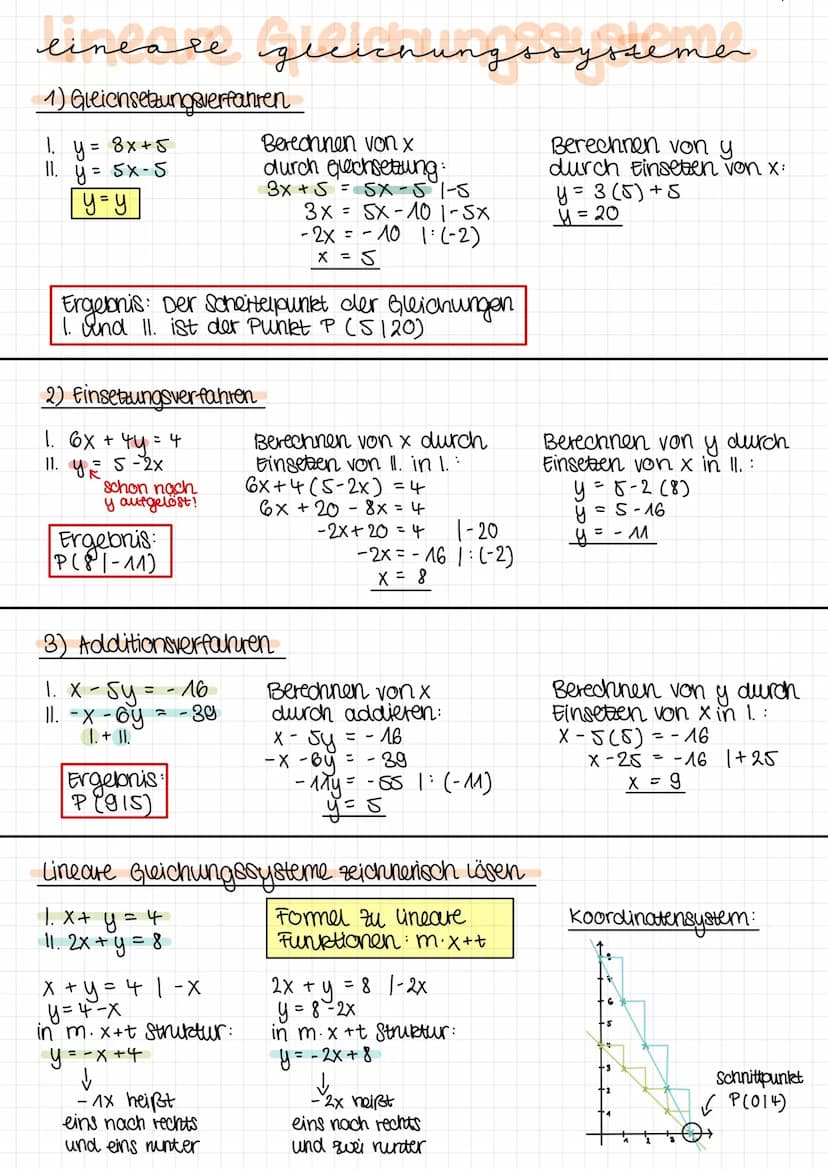 lineare Gleichungssysteme
lineare gleichungssysteme
1) Gleichsetzungsverfahren
I. y = 3x+5
II. y = 5x-5
y=y
Berechnen von x
durch Gleichsetzung:
3x+5 = 5x-5 |-5
3x = 5x-10 |-5x
-2x = -10 |:(-2)
x = 5
Berechnen von y
durch Einsetzen von x:
y = 3(5)+5
y = 20
Ergebnis: Der Scheitelpunkt der Gleichungen
I. und II. ist der Punkt P(5|20)
2) Einsetzungsverfahren
I. 6x + 4y = 4
II. y = 5-2x
schon nach
y aufgelöst!
Ergebnis:
P(8|-11)
Berechnen von x durch
Einsetzen von II. in I.:
6x+4(5-2x) = 4
6x + 20 - 8x = 4
-2x+20 = 4 |-20
-2x = -16 |:(-2)
x = 8
Berechnen von y durch
Einsetzen von x in II.:
y = 5-2(8)
y = 5-16
y = -11
3) Additionsverfahren
I. x-5y = -16
II. -x-6y = -39
I.+II.
Ergebnis:
P(9|5)
Berechnen von x
durch addieren:
x - 5y = -16
-x -6y = -39
-11y = -55 |:(-11)
y = 5
Berechnen von y durch
Einsetzen von x in I.:
x-5(5) = -16
x-25 = -16 |+25
x = 9
Lineare Gleichungssysteme zeichnerisch lösen
I. x+y = 4
II. 2x+y = 8
Formel zu lineare
Funktionen: m·x+t
x+y = 4 |-x
y=4-x
in m·x+t Struktur:
y=-x+4
↓
-1x heißt
eins nach rechts
und eins runter
2x + y = 8 |-2x
y = 8-2x
in m·x+t Struktur:
y = -2x+8
↓
-2x heißt
eins nach rechts
und zwei runter
Koordinatensystem:
Schnittpunkt
P(0|4)